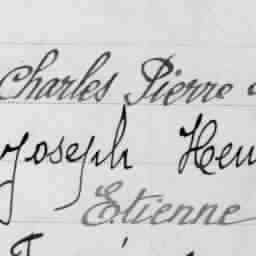 Charles Pierre
Joseph Hen
Etienne